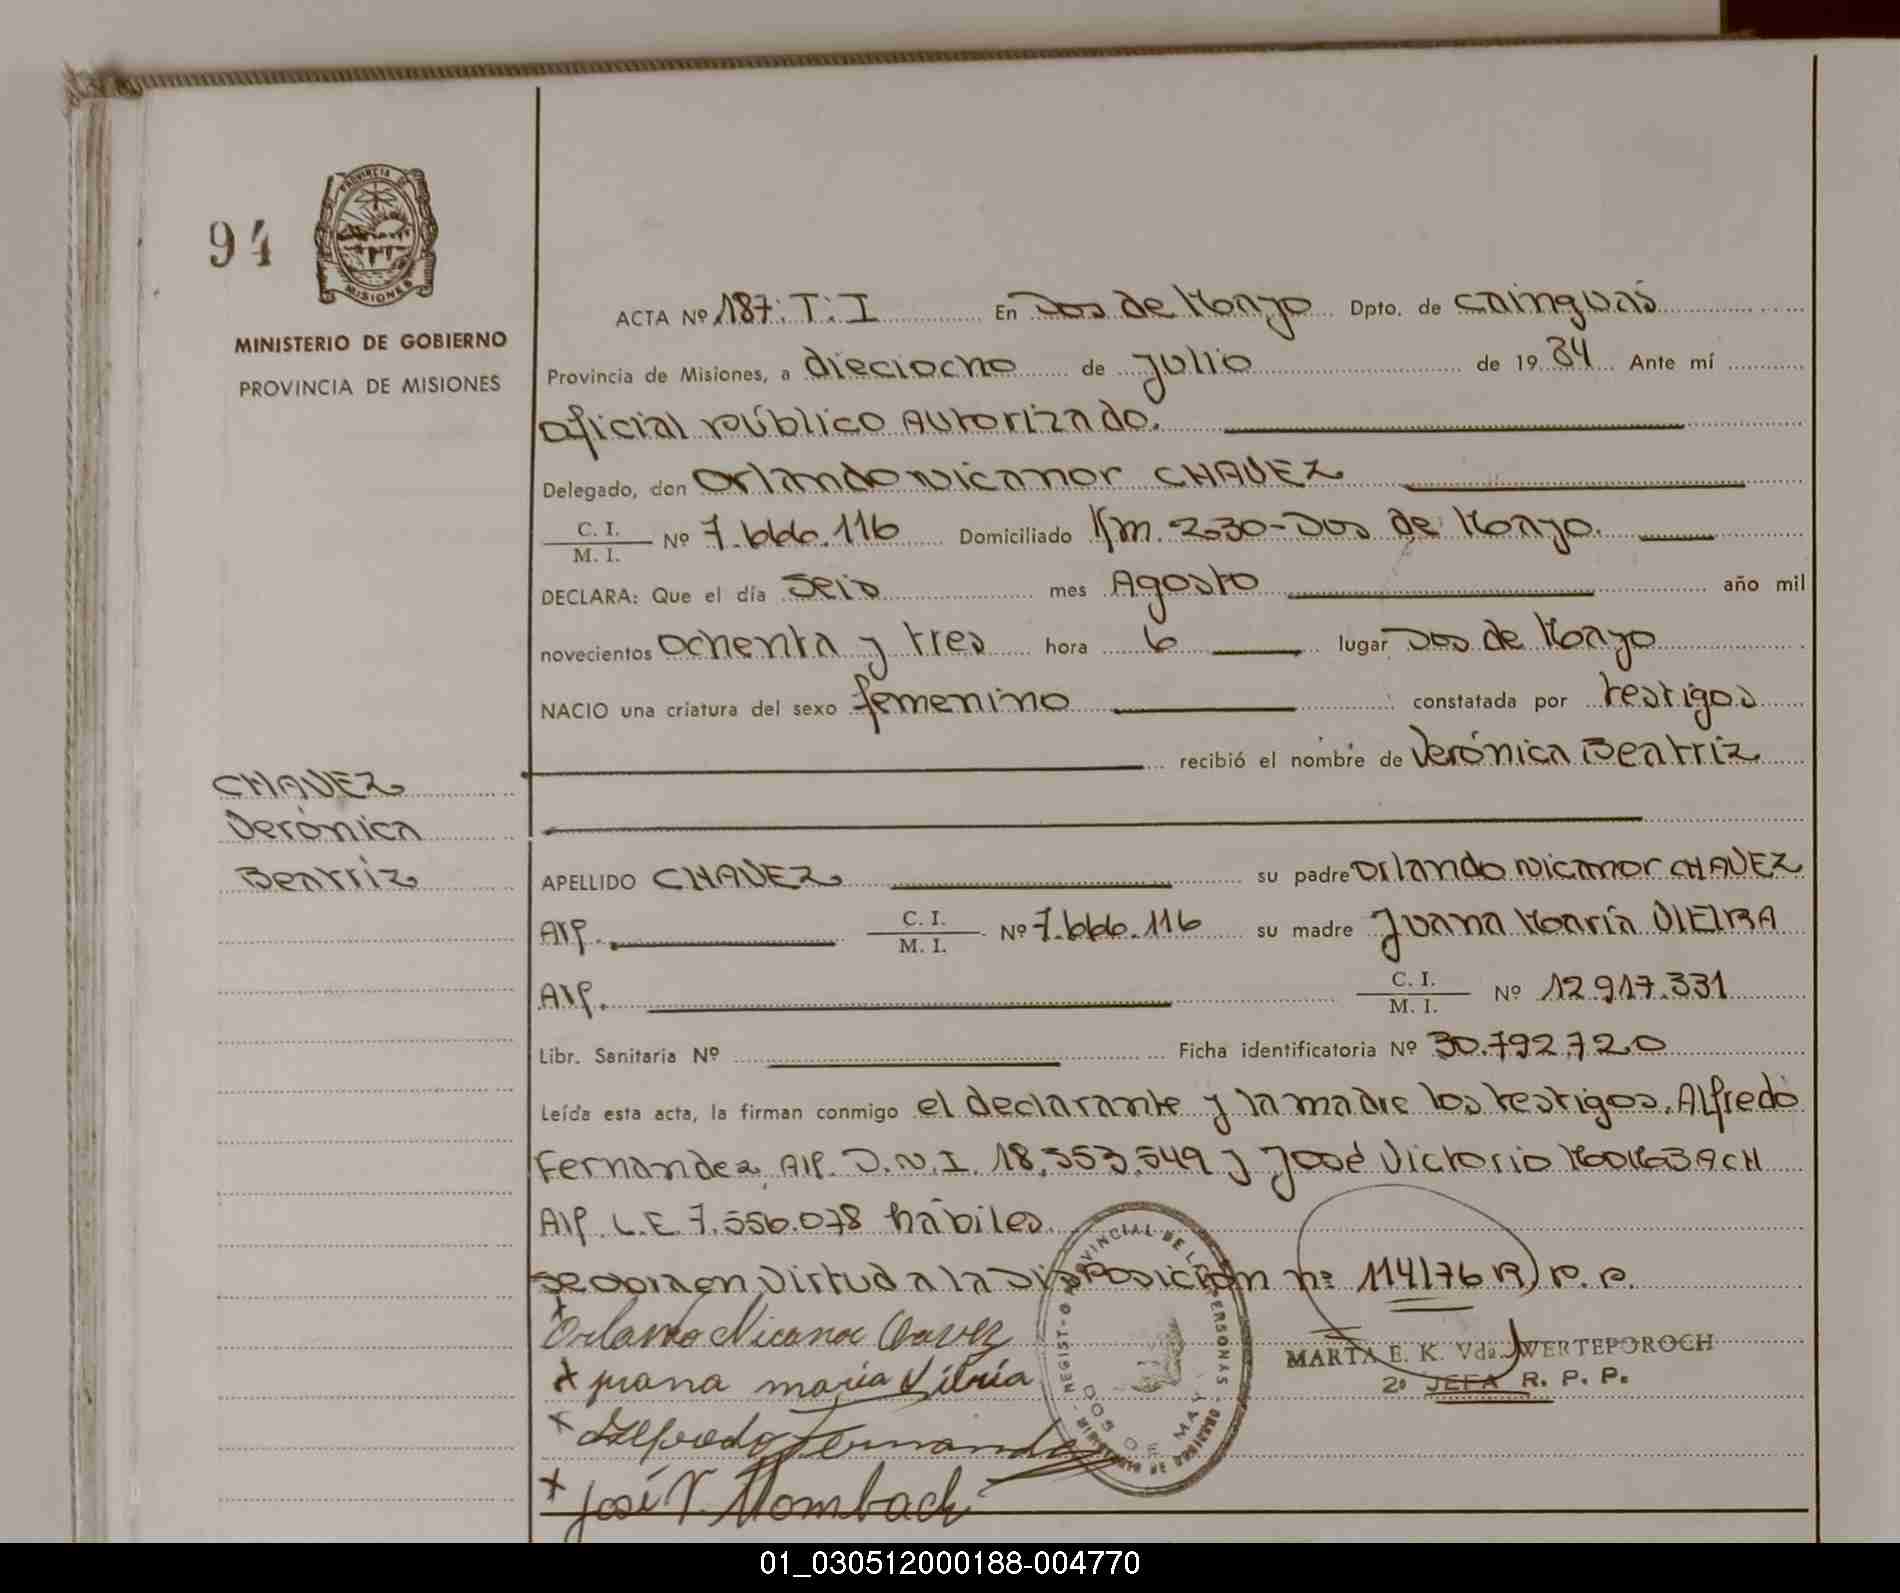 94
PROVINCIA DE
MISIONES
MINISTERIO DE GOBIERNO
PROVINCIA DE MISIONES
ACTA Nº 187: T: I En Dos de Mayo Dpto. de Cainguás
Provincia de Misiones, a dieciocho de Julio de 1984 Ante mí
Oficial Público Autorizado.
Delegado, don Orlando Nicanor CHAVEZ
C. I.
M. I. Nº 7.666.116 Domiciliado Km. 230-Dos de Mayo.
DECLARA: Que el día Seis mes Agosto año mil
novecientos ochenta y tres hora 6 lugar Dos de Mayo
NACIO una criatura del sexo femenino constatada por testigos
recibió el nombre de Verónica Beatriz
CHAVEZ
Verónica
Beatriz
APELLIDO CHAVEZ su padre Orlando Nicanor CHAVEZ
Arg. C. I.
M. I. Nº 7.666.116 su madre Juana María VIEIRA
Arg. C. I.
M. I. Nº 12.917.331
Libr. Sanitaria Nº Ficha identificatoria Nº 30.792.720
Leída esta acta, la firman conmigo el declarante y la madre los testigos. Alfredo
Fernandez, Arg. D.N.I. 18.553.549 y José Victorio MOMBACH
Arg. L.E. 7.556.078 hábiles.
en virtud a la Disposición nº 114/76 R.P.P.
Orlando Nicanor Chavez
x Juana maria
x Alfredo Fernandez
x José V. Mombach
REGISTRO PROVINCIAL DE LAS PERSONAS
MINISTERIO DE GOBIERNO
DOS DE MAYO
MARTA E. K. Vda. WERTEPOROCH
2º JEFA R. P. P.
01_030512000188-004770